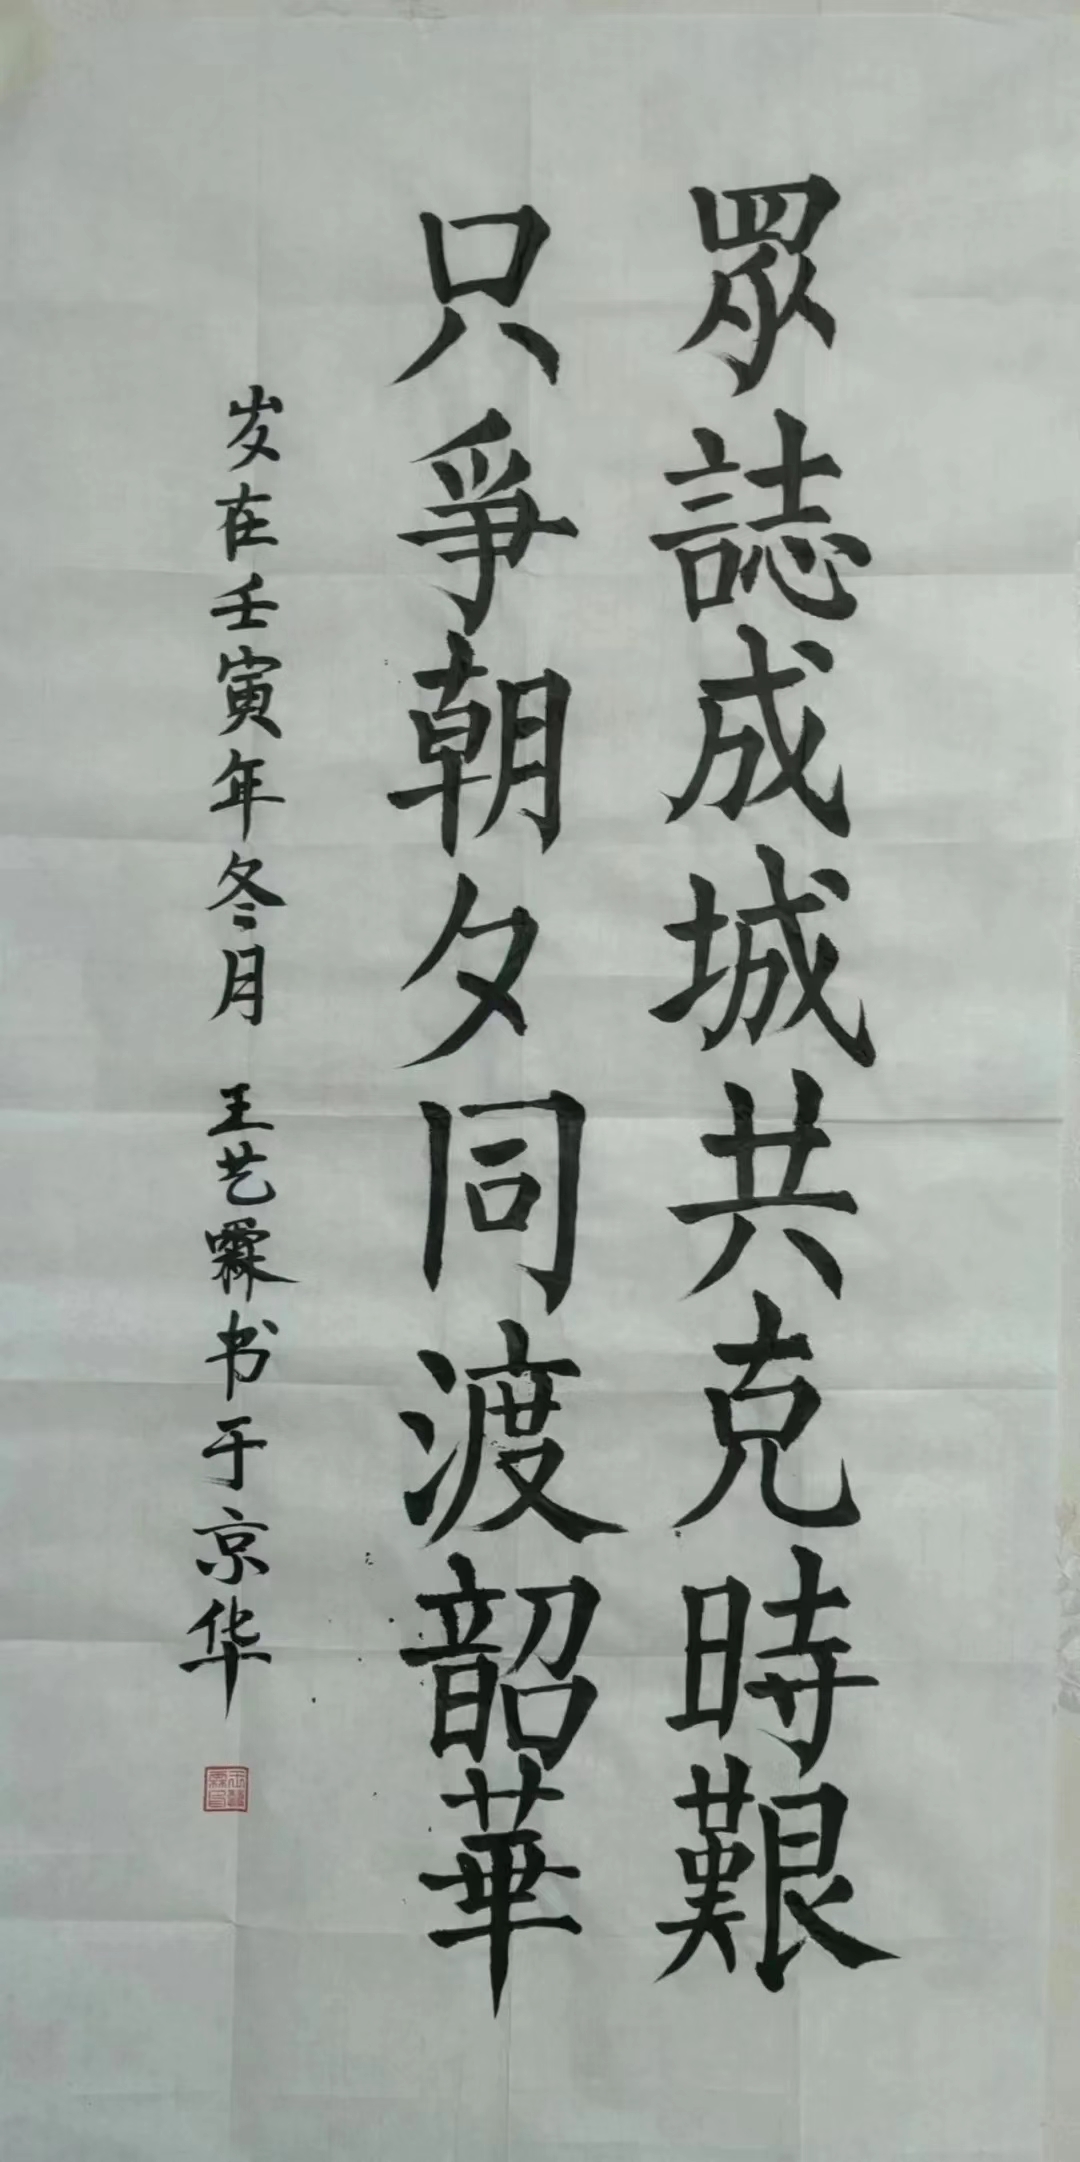 眾誌成城共克時艱
只爭朝夕同渡韶華
岁在壬寅年冬月 王艺霖书于京华